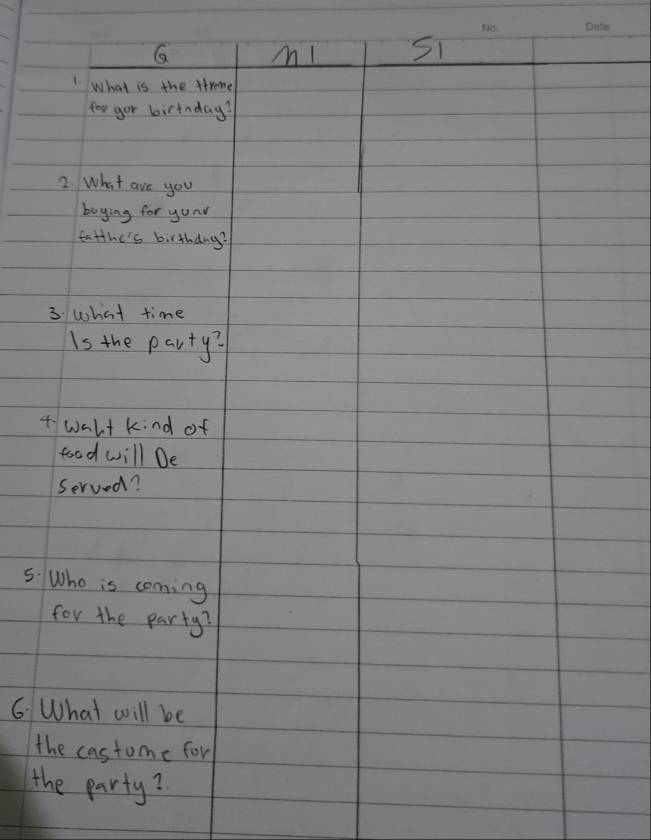 No. Date
Q M1 S1
1. What is the theme
for your birthday?
2. What are you
buying for your
fatthe's birthday?
3. What time
Is the party?
4. Waht kind of
food will be
served?
5. Who is coming
for the party?
6. What will be
the castome for
the party?